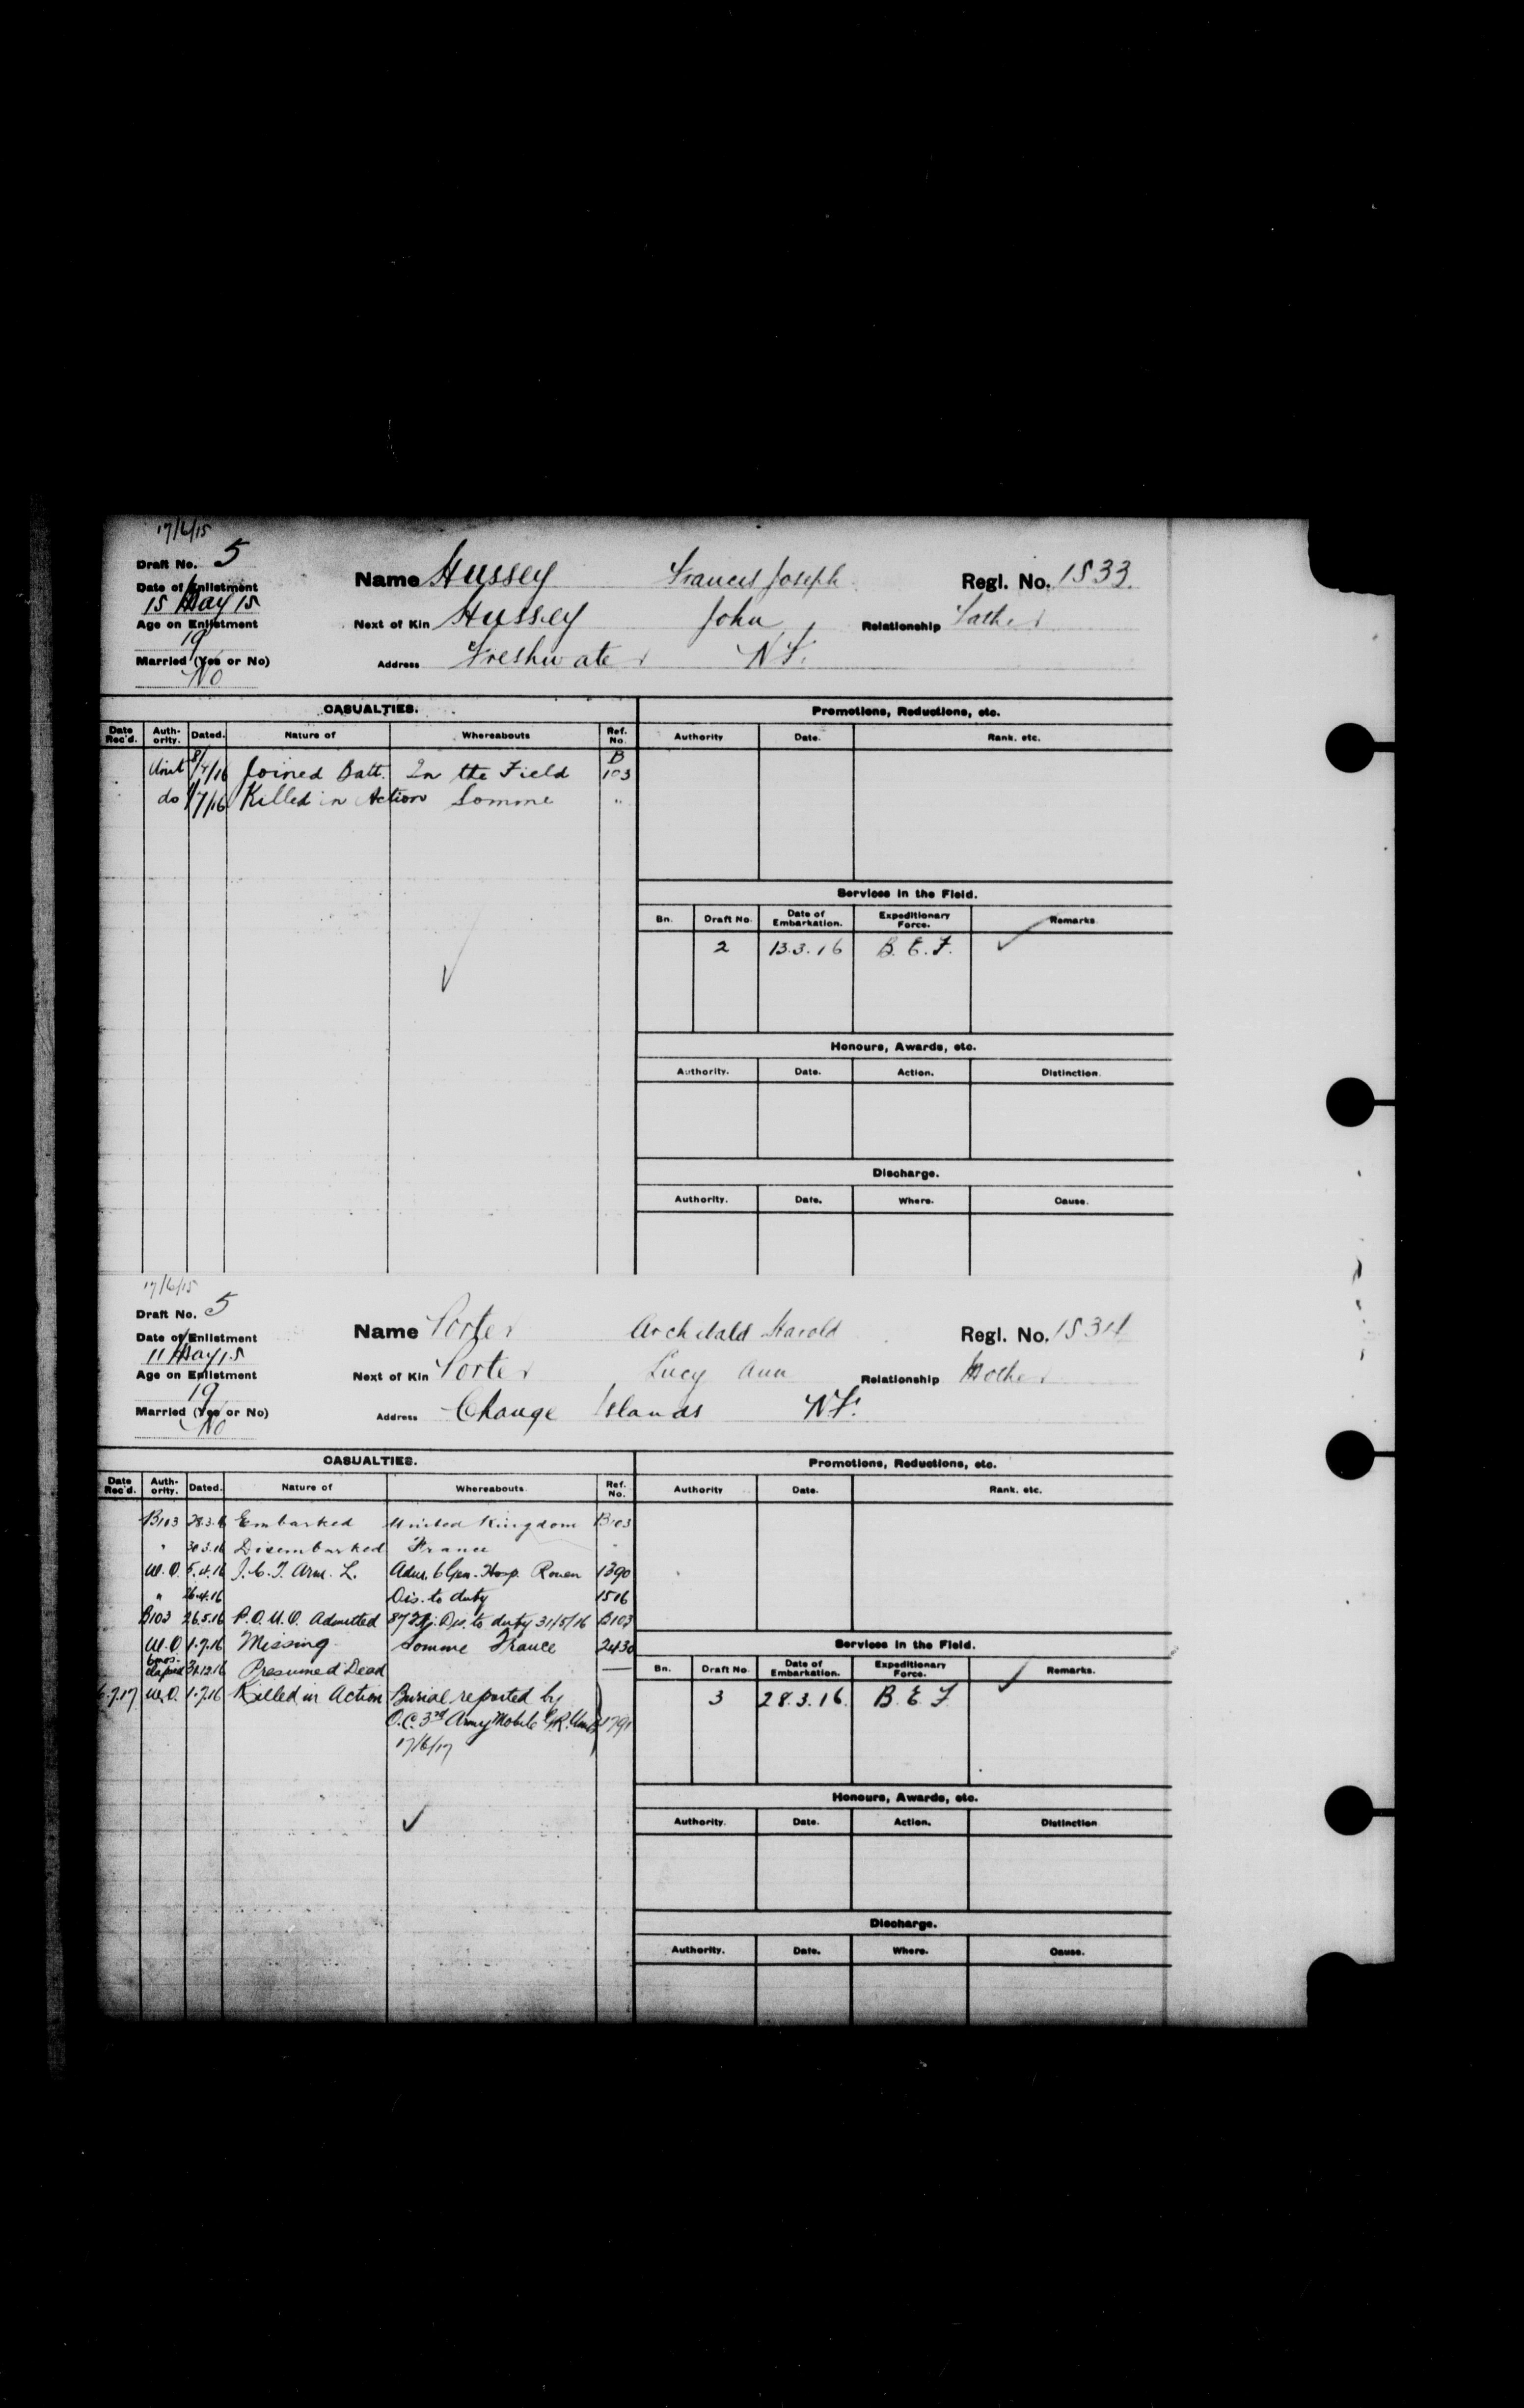 17/6/15
Draft No. 5
Date of Enlistment
15 May 15
Name Hussey Francis Joseph Regl. No. 1533.
Age on Enlistment
19
Next of Kin Hussey John Relationship Father
Married (Yes or No)
No
Address Freshwater N.F.
CASUALTIES. Promotions, Reductions, etc.
Date Rec'd. Auth-ority. Dated. Nature of Whereabouts Ref. No. Authority Date. Rank. etc.
Unit 8/4/16 Joined Batt. In the Field B 103
do 1/7/16 Killed in Action Somme "
Services in the Field.
Bn. Draft No. Date of Embarkation. Expeditionary Force. Remarks.
2 13.3.16 B.E.F.
Honours, Awards, etc.
Authority. Date. Action. Distinction.
Discharge.
Authority. Date. Where. Cause.
17/6/15
Draft No. 5
Date of Enlistment
11 May 15
Name Porter Archibald Harold Regl. No. 1534
Age on Enlistment
19
Next of Kin Porter Lucy Ann Relationship Mother
Married (Yes or No)
No
Address Change Islands N.F.
CASUALTIES. Promotions, Reductions, etc.
Date Rec'd. Auth-ority. Dated. Nature of Whereabouts Ref. No. Authority Date. Rank. etc.
B103 28.3.16 Embarked United Kingdom B103
" 30.3.16 Disembarked France "
W.O. 5.4.16 I.C.T. Arm. L. Adm. 6 Gen. Hosp. Rouen 1390
" 26.4.16 Dis. to duty 1516
B103 26.5.16 P.U.O. Admitted 87 Dis. to duty 31/5/16 B103
W.O. 1.7.16 Missing Somme France 2430
6 mos. elapsed 31.12.16 Presumed Dead
6.7.17 W.O. 1.7.16 Killed in Action Burial reported by
O.C. 3rd Army Mobile G.R. Units 1791
17/6/17
Services in the Field.
Bn. Draft No. Date of Embarkation. Expeditionary Force. Remarks.
3 28.3.16. B.E.F
Honours, Awards, etc.
Authority. Date. Action. Distinction
Discharge.
Authority. Date. Where. Cause.